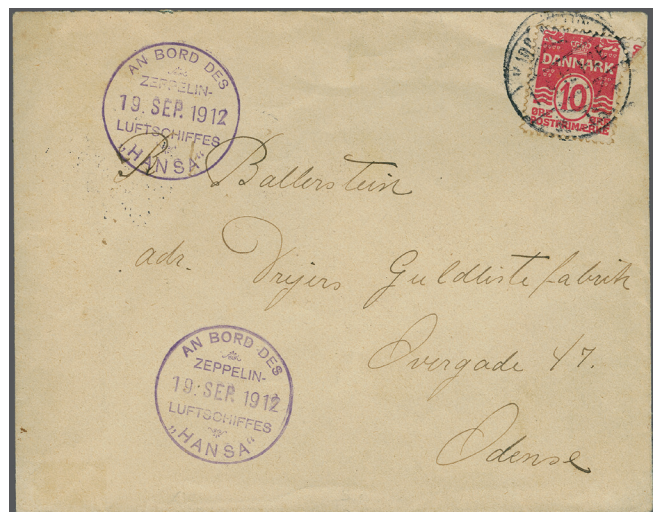 AN BORD DES
ZEPPELIN-
19. SEP. 1912
LUFTSCHIFFES
„HANSA“
DANMARK
10
ØRE ØRE
POSTFRIMÆRKE
R Ballerstein
adr. Guldlistefabrik
Overgade 47.
Odense
AN BORD DES
ZEPPELIN-
19. SEP. 1912
LUFTSCHIFFES
„HANSA“